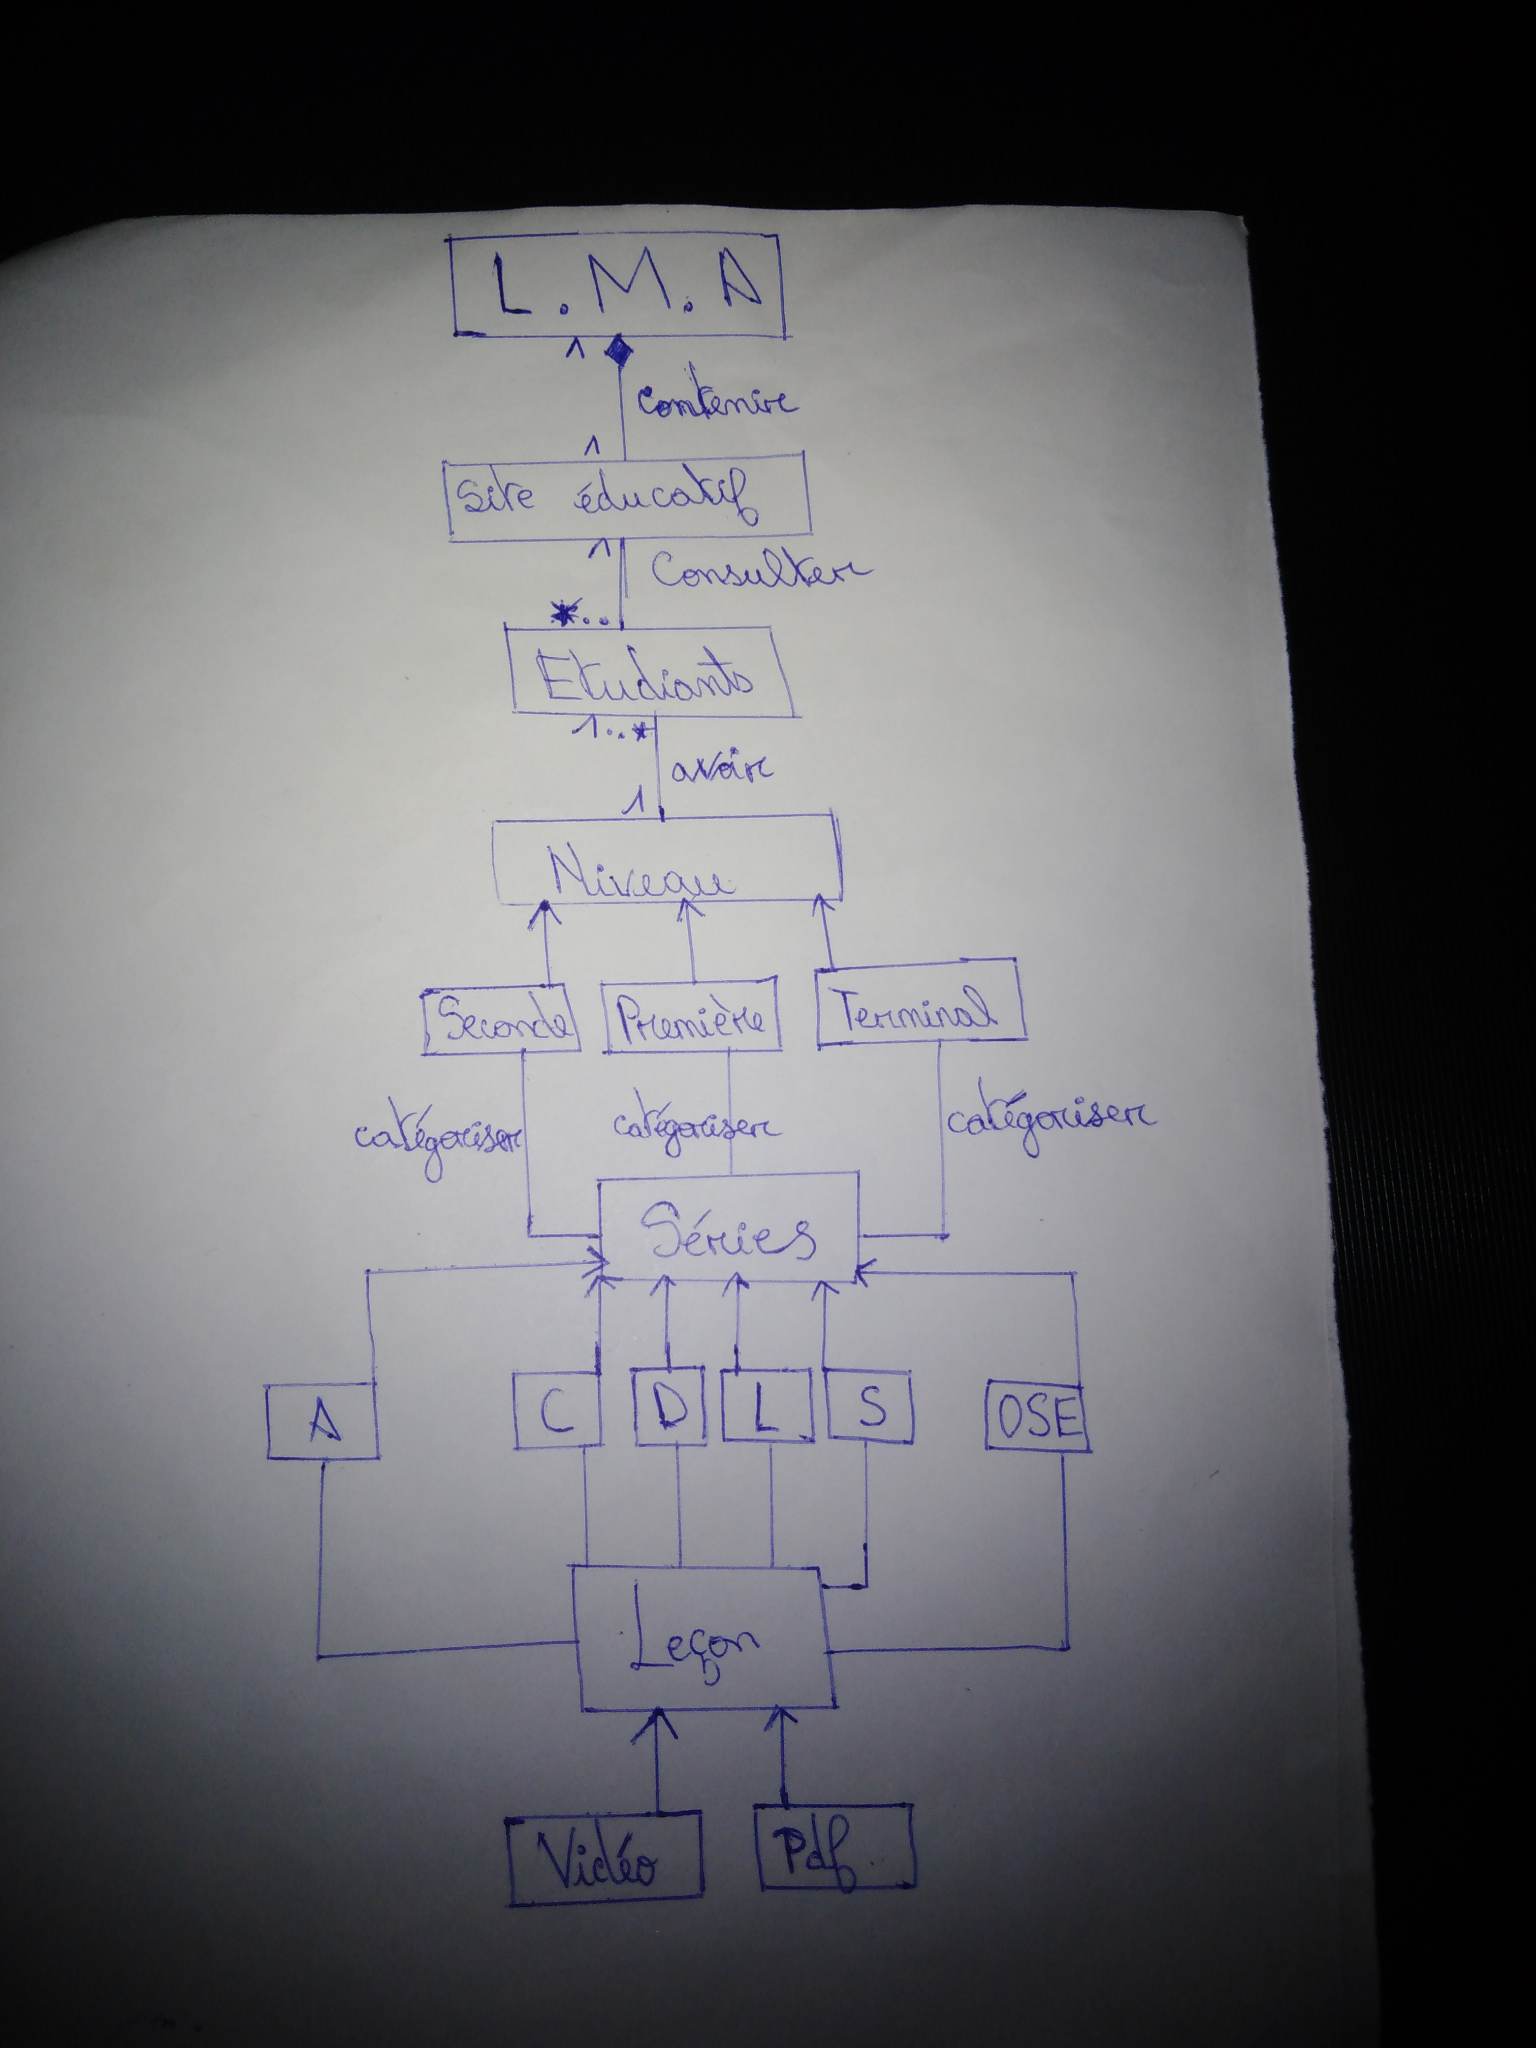 L.M.A
1
contenir
1
Site éducatif
1
Consulter
*..
Etudiants
1..*
avoir
1
Niveau
Seconde Première Terminal
catégoriser catégoriser catégoriser
Séries
A C D L S OSE
Leçon
Vidéo Pdf